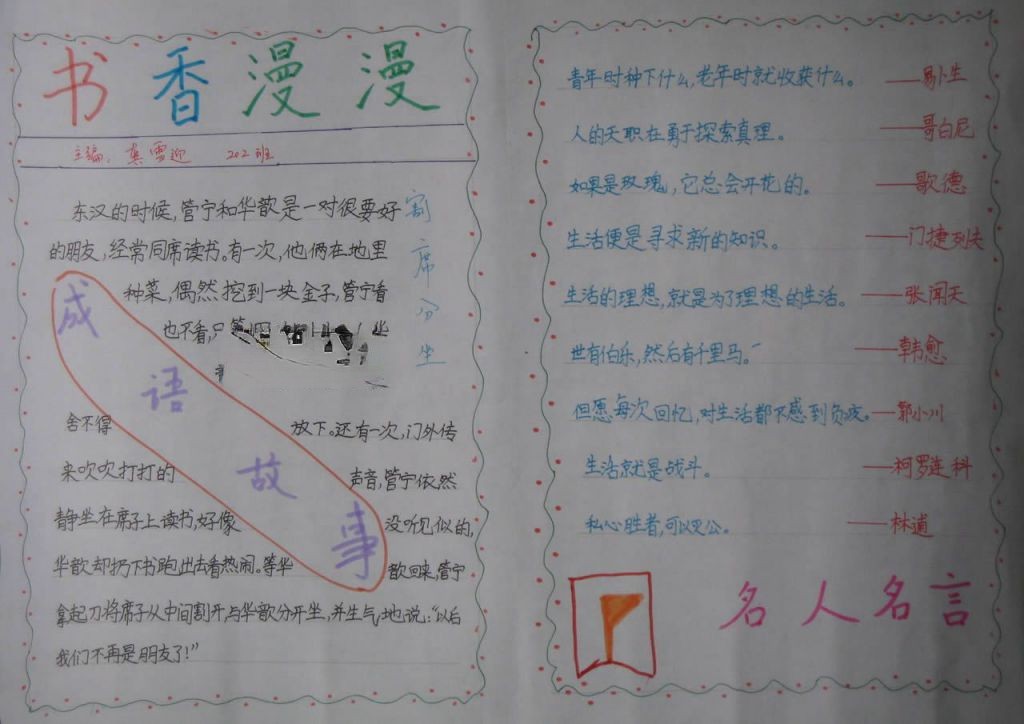 书香漫漫
主编：龚雪迎 202班
割席分坐
东汉的时候，管宁和华歆是一对很要好
的朋友，经常同席读书。有一次，他俩在地里
种菜，偶然挖到一块金子，管宁看
也不看，只
舍不得 放下。还有一次，门外传
来吹吹打打的 声音，管宁依然
静坐在席子上读书，好像 没听见似的，
华歆却扔下书跑出去看热闹。等华 歆回来，管宁
拿起刀将席子从中间割开，与华歆分开坐，并生气地说：“以后
我们不再是朋友了！”
成语故事
青年时种下什么，老年时就收获什么。——易卜生
人的天职在勇于探索真理。——哥白尼
如果是玫瑰，它总会开花的。——歌德
生活便是寻求新的知识。——门捷列夫
生活的理想，就是为了理想的生活。——张闻天
世有伯乐，然后有千里马。——韩愈
但愿每次回忆，对生活都不感到负疚。——郭小川
生活就是战斗。——柯罗连科
私心胜者，可以灭公。——林逋
名人名言